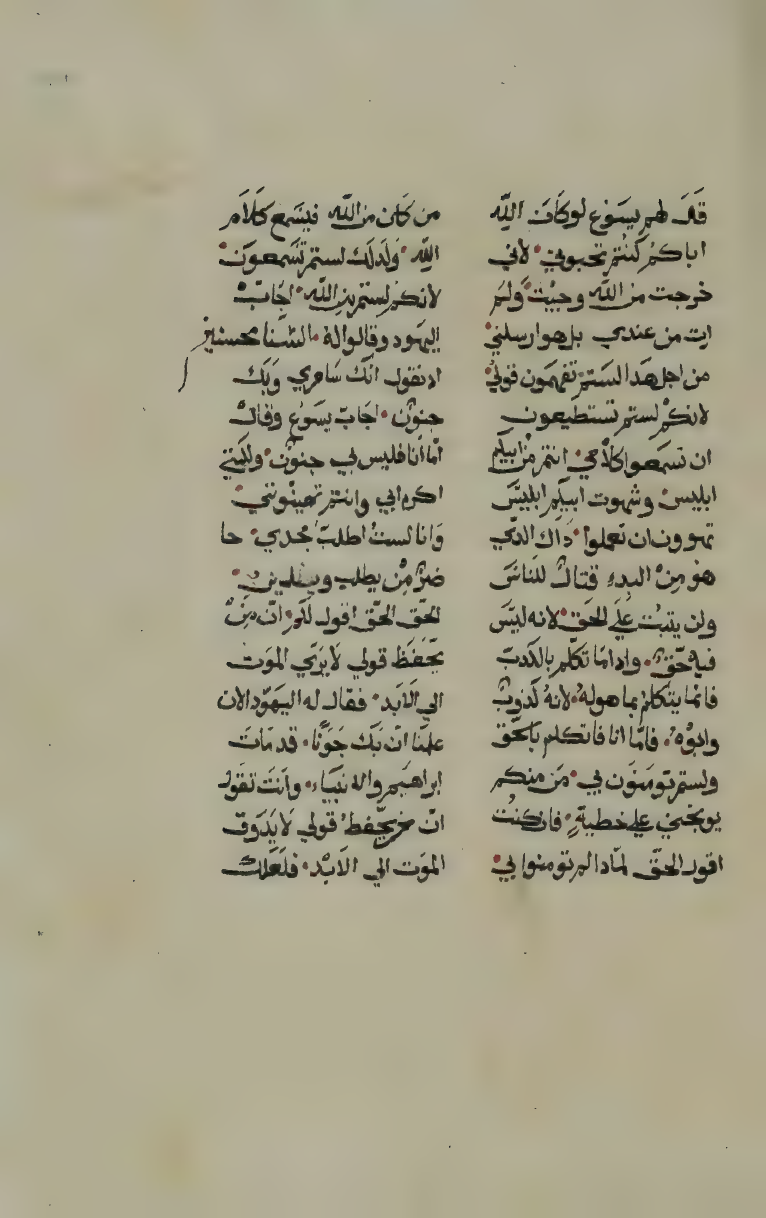 قال لهم يسوع لو كان الله
اباكم كنتم تحبوني لاني
خرجت من الله وجيت ولم
ات من عندي بل هو ارسلني
من اجل هدا لستم تفهمون قولي
لانكم لستم تستطيعون
ان تسمعوا كلامي انتم من ابيكم
ابليس وشهوت ابيكم ابليس
تهوون ان تعملوا داك الدي
هو من البدء قتال للناس
ولن يتبت علي الحق لانه ليس
فيه حق وادا ما تكلم بالكدب
فانما يتكلم بما هو له لانه كدوب
وابوه فاما انا فاتكلم بالحق
ولستم تومنون بي من منكم
يوبخني علي خطية فان كنت
اقول الحق لمادا لم تومنوا بي
من كان من الله فيسمع كلام
الله ولدلك لستم تسمعون
لانكم لستم من الله اجاب
اليهود وقالوا له السنا محسنين
اد نقول انك سامري وبك
جنون اجاب يسوع وقال
اما انا فليس بي جنون ولكني
اكرم ابي وانتم تهينونني
وانا لست اطلب مجدي حا
ضر من يطلب ويدين
الحق الحق اقول لكم ان من
يحفظ قولي لا يري الموت
الي الابد فقال له اليهود الان
علمنا ان بك جنونا قد مات
ابراهيم والانبياء وانت تقول
ان من يحفظ قولي لا يدوق
الموت الي الابد فلعلك